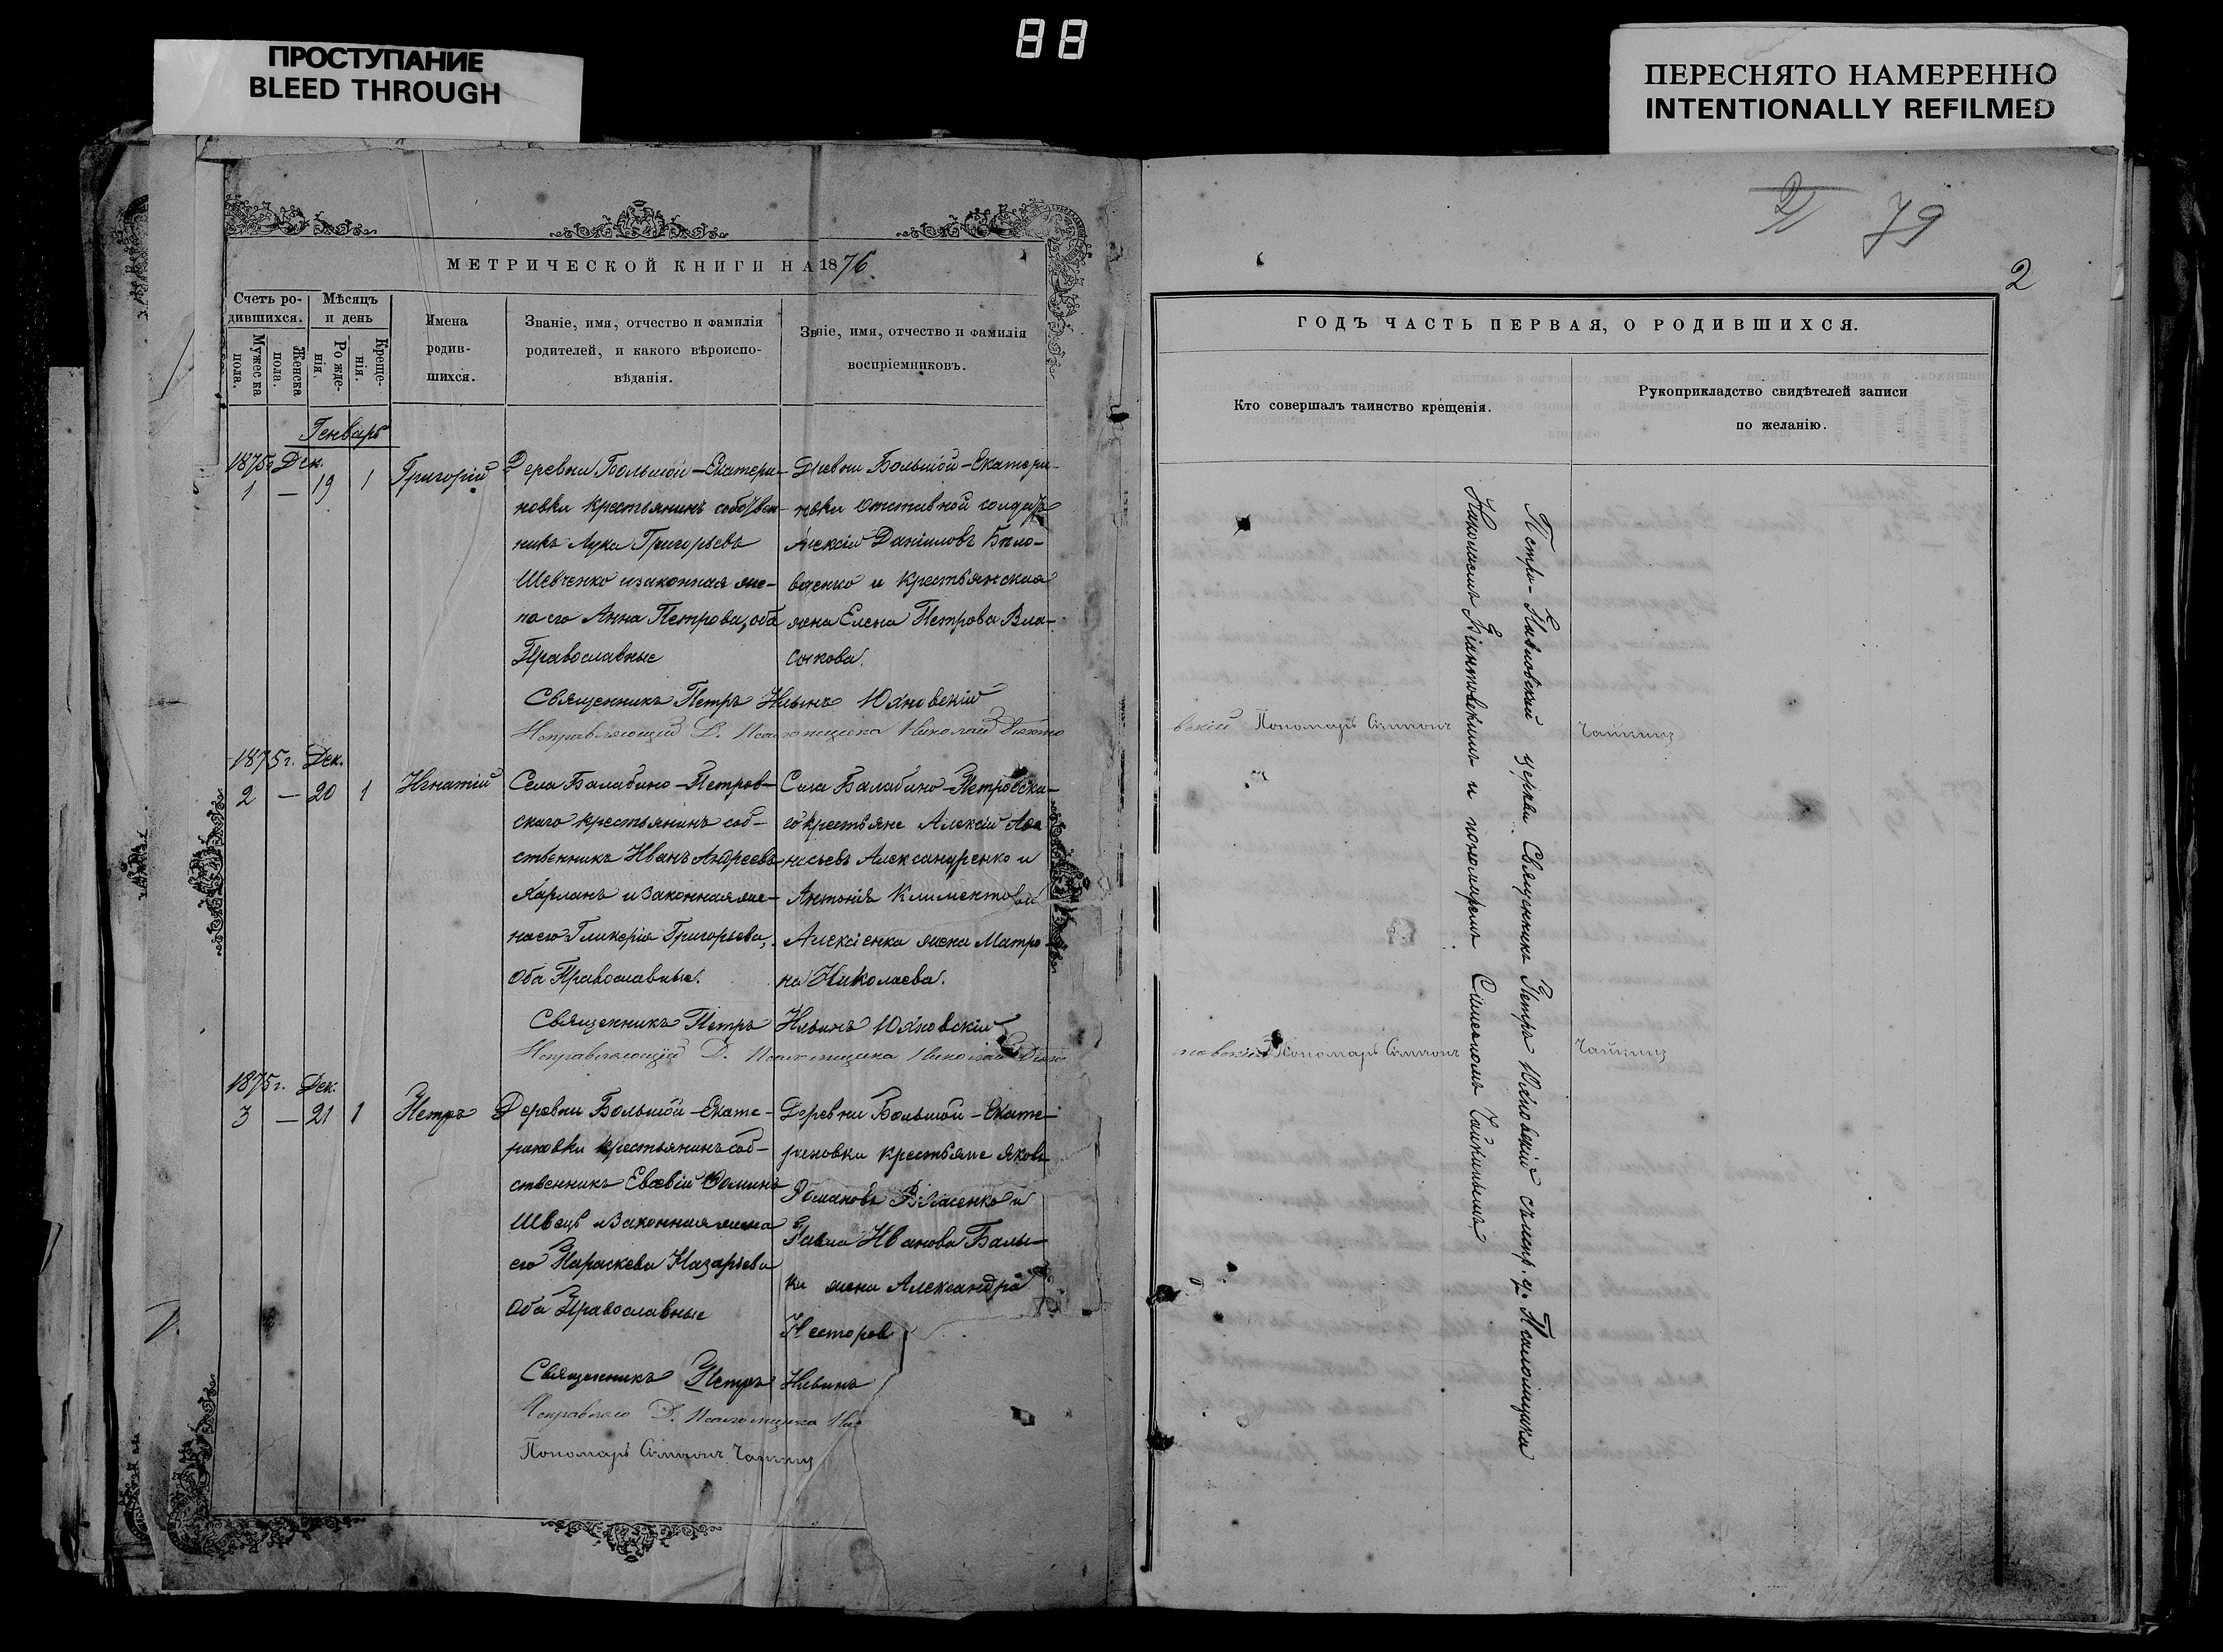 88
ПРОСТУПАНИЕ
BLEED THROUGH
ПЕРЕСНЯТО НАМЕРЕННО
INTENTIONALLY REFILMED
79
2
МЕТРИЧЕСКОЙ КНИГИ НА 1876
Счетъ ро-
дившихся.
Мужеска пола.
Женска пола.
Мѣсяцъ
и день
Рожде-
нія.
Креще-
нія.
Имена
родив-
шихся.
Званіе, имя, отчество и фамилія
родителей, и какого вѣроиспо-
вѣданія.
Званіе, имя, отчество и фамилія
воспріемниковъ.
Генварь
1875г. Дек.
1 — 19 1
Григорій
Деревни Большой-Екатери-
новки крестьянинъ собствен-
никъ Лука Григорьевъ
Шевченко и законная же-
на его Анна Петрова, оба
Православные
Деревни Большой-Екатери-
новки отставной солдатъ
Алексій Даніиловъ Бѣло-
и крестьянская
жена Елена Петрова Вла-
сокова.
Священникъ Петръ Ильинъ Юхновскій
Исправляющій Д. Псаломщика Николай
1875г. Дек.
2 — 20 1
Игнатій
Села Балабино-Петров-
скаго крестьянинъ соб-
ственникъ Иванъ Андреевъ
Харланъ и законная же-
на его Гликерія Григорьева,
Оба Православные.
Села Балабино-Петровска-
го крестьяне Алексій Аѳа-
насьевъ Александренко и
Антонія Климентова
Алексіенка жена Матро-
на Николаева.
Священникъ Петръ Ильинъ Юхновскій
Исправляющій Д. Псаломщика Николай
1875г. Дек.
3 — 21 1
Петръ
Деревни Большой-Екате-
риновки крестьянинъ соб-
ственникъ Евсевій Ѳоминъ
Швецъ и законная жена
его Параскева Назарьева
Оба Православные
Деревни Большой-Екате-
риновки крестьяне Яковъ
Романовъ Власенко и
Павла Иванова Балы-
ки жена Александра
Несторова
Священникъ Петръ Ильинъ
Исправляю Д. Псаломщика Ник
Пономарь Симеонъ Чайкинъ
ГОДЪ ЧАСТЬ ПЕРВАЯ, О РОДИВШИХСЯ.
Кто совершалъ таинство крещенія.
Рукоприкладство свидѣтелей записи
по желанію.
Петро-Павловской церкви Священникъ Петръ Юхновскій съ испр. д. Псаломщика
Николаемъ Віантовскимъ и пономаремъ Сімеономъ Чайкинымъ
вскій Пономарь Симеонъ Чайкинъ
новскій Пономарь Симеонъ Чайкинъ